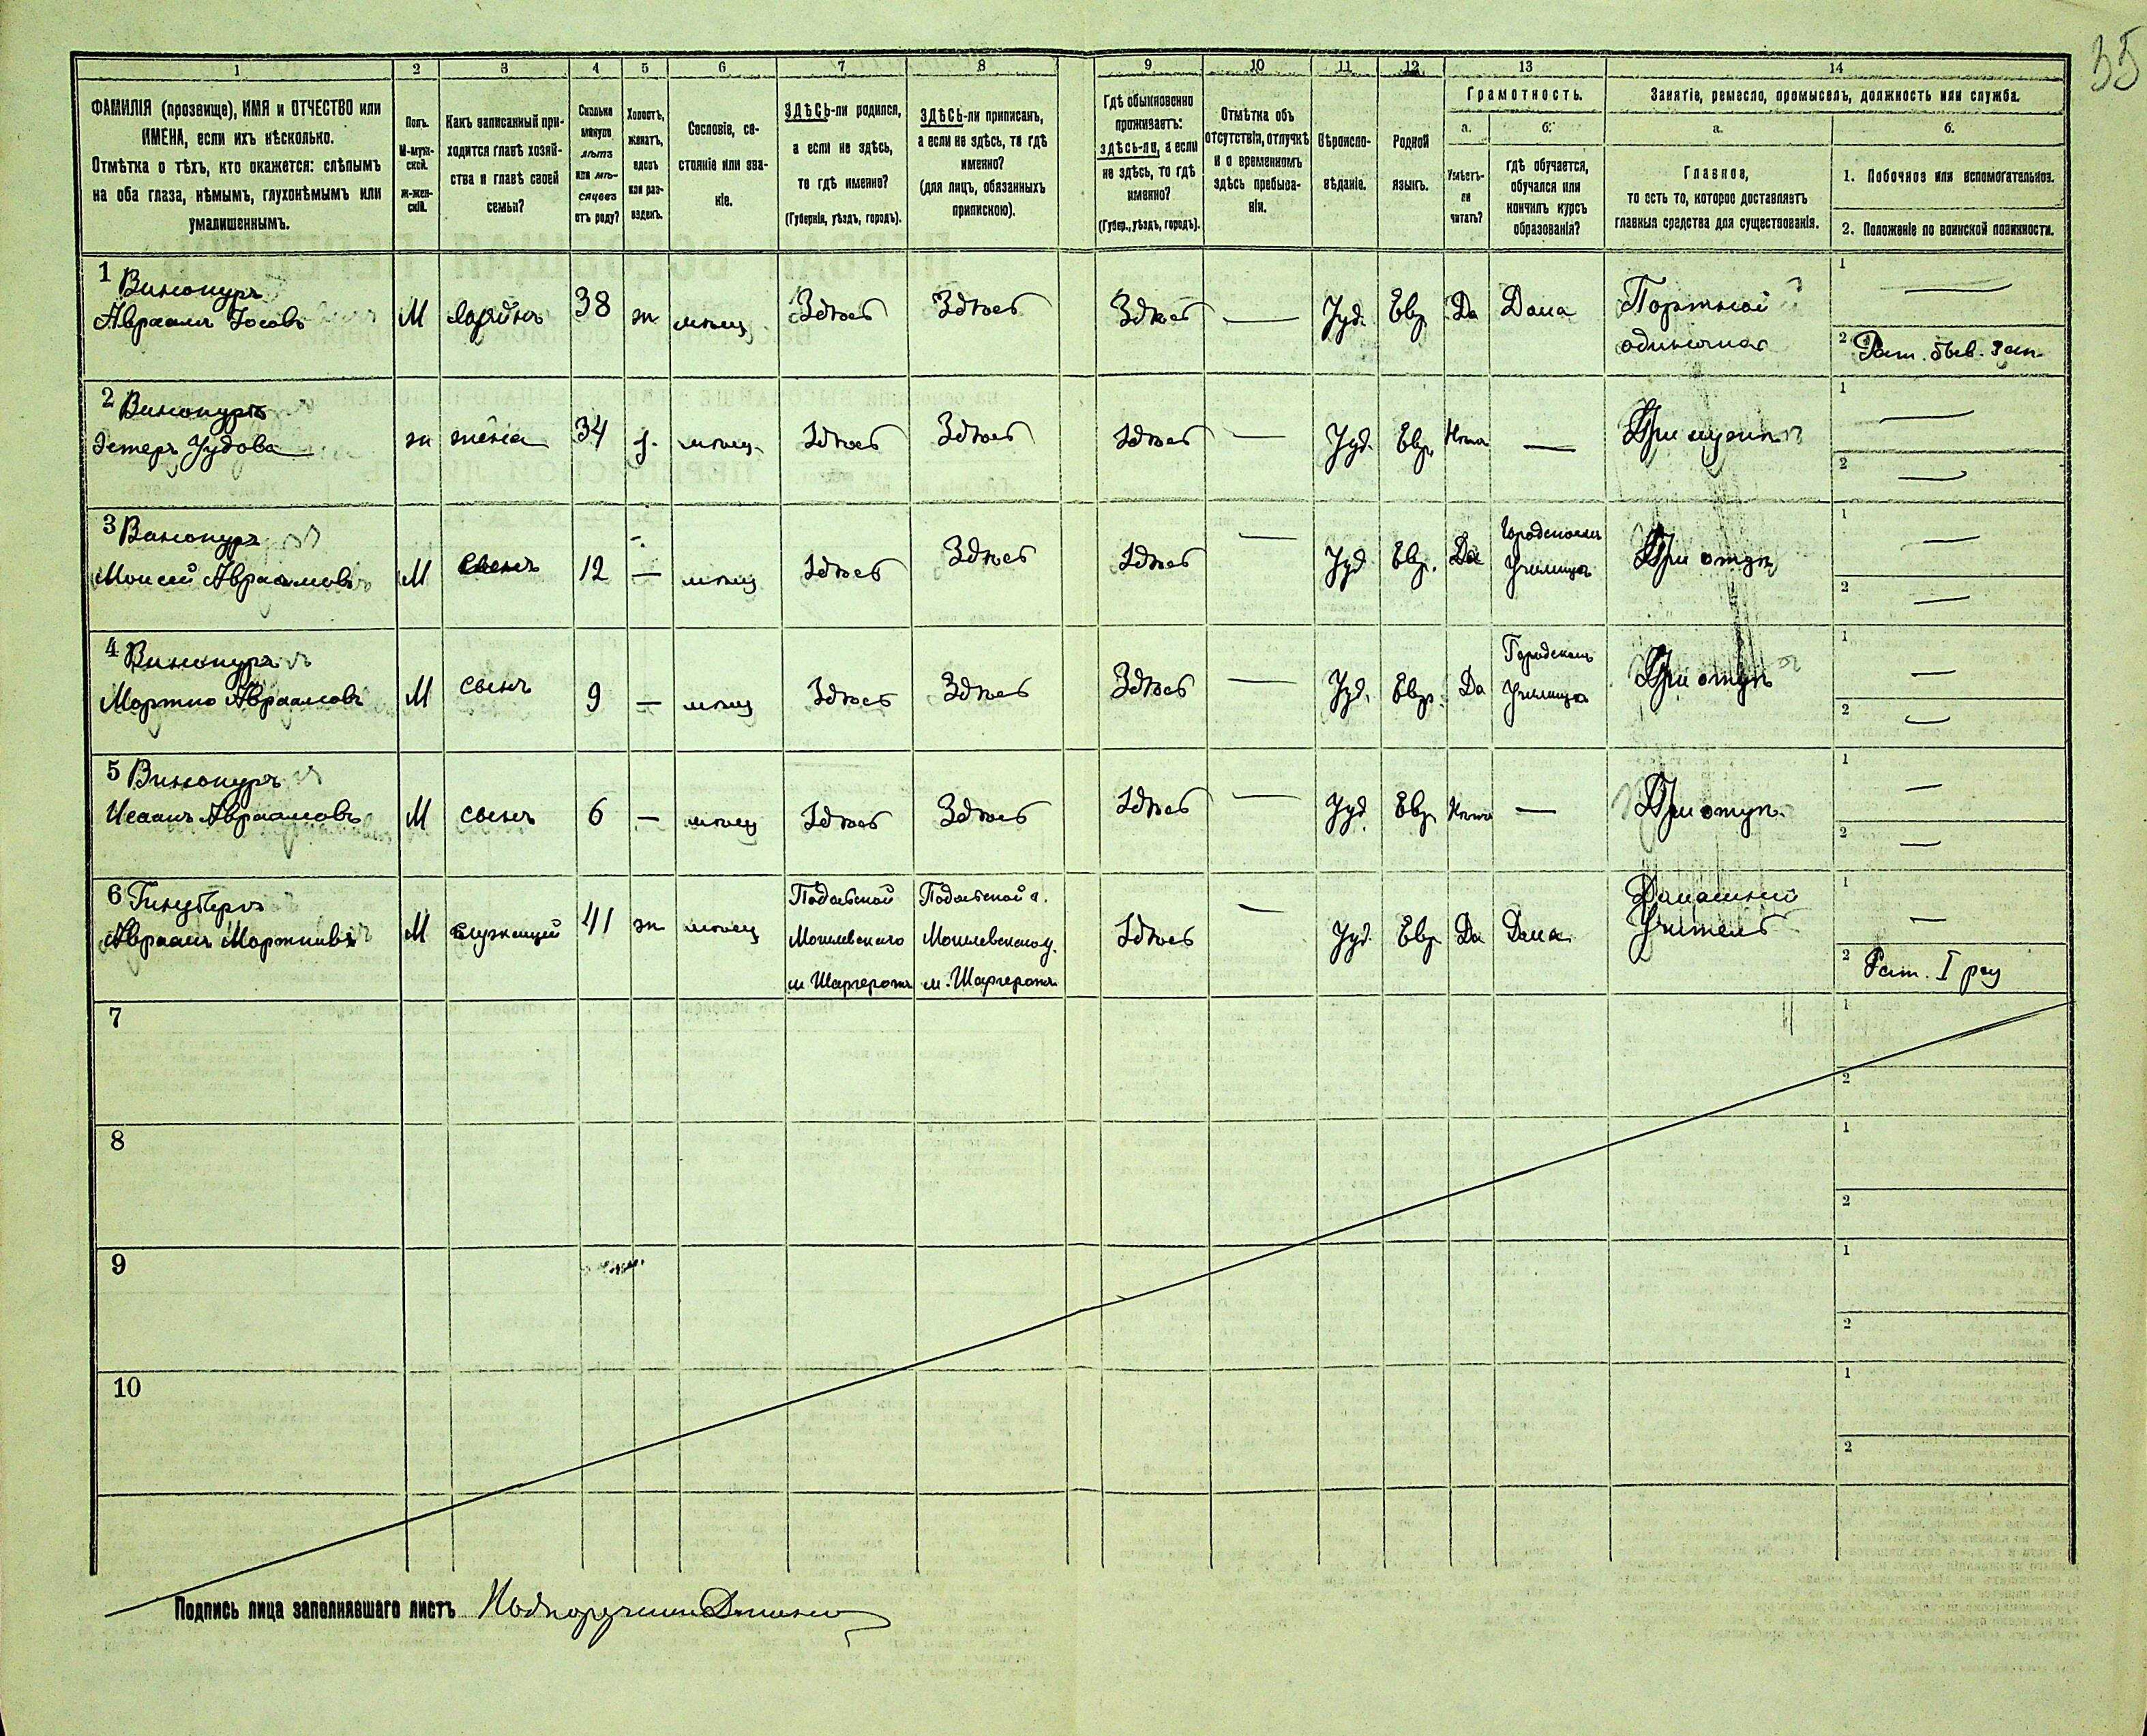 35
1 2 3 4 5 6 7 8 9 10 11 12 13 14
ФАМИЛІЯ (прозвище), ИМЯ и ОТЧЕСТВО или
ИМЕНА, если ихъ нѣсколько.
Отмѣтка о тѣхъ, кто окажется: слѣпымъ
на оба глаза, нѣмымъ, глухонѣмымъ или
умалишеннымъ.
Полъ.
М-муж-
ской.
ж-жен-
скій.
Какъ записанный при-
ходится главѣ хозяй-
ства и главѣ своей
семьи?
Сколько
минуло
лѣтъ
или мѣ-
сяцевъ
отъ роду?
Холостъ,
женатъ,
вдовъ
или раз-
веденъ.
Сословіе, со-
стояніе или зва-
ніе.
ЗДѢСЬ-ли родился,
а если не здѣсь,
то гдѣ именно?
(Губернія, уѣздъ, городъ).
ЗДѢСЬ-ли приписанъ,
а если не здѣсь, то гдѣ
именно?
(для лицъ, обязанныхъ
припискою).
Гдѣ обыкновенно
проживаетъ:
здѣсь-ли, а если
не здѣсь, то гдѣ
именно?
(Губер., уѣздъ, городъ).
Отмѣтка объ
отсутствіи, отлучкѣ
и о временномъ
здѣсь пребыва-
ніи.
Вѣроиспо-
вѣданіе.
Родной
языкъ.
Грамотность.
а.
Умѣетъ-
ли
читать?
б.
гдѣ обучается,
обучался или
кончилъ курсъ
образованія?
Занятіе, ремесло, промыселъ, должность или служба.
а.
Главное,
то есть то, которое доставляетъ
главныя средства для существованія.
б.
1. Побочное или вспомогательное.
2. Положеніе по воинской повинности.
1 Винокуръ
Авраамъ Іосовъ М хозяинъ 38 ж мѣщ. Здѣсь Здѣсь Здѣсь — Іуд. Евр. Да Дома Портной
одиночка
1 —
2 Рат.
2 Винокуръ
Эстеръ Іудова ж жена 34 з. мѣщ. Здѣсь Здѣсь Здѣсь — Іуд. Евр. Нѣтъ — При мужѣ
1 —
2 —
3 Винокуръ
Моисей Авраамовъ М сынъ 12 — мѣщ Здѣсь Здѣсь Здѣсь — Іуд Евр. Да Городскомъ
Училищѣ При отцѣ
1 —
2 —
4 Винокуръ
Мортко Авраамовъ М сынъ 9 — мѣщ Здѣсь Здѣсь Здѣсь — Іуд. Евр. Да Городскомъ
Училищѣ При отцѣ
1 —
2 —
5 Винокуръ
Исаакъ Авраамовъ М сынъ 6 — мѣщ Здѣсь Здѣсь Здѣсь — Іуд Евр Нѣтъ — При отцѣ
1 —
2 —
6 Гинзбергъ
Авраамъ Мортковъ М служащій 41 ж мѣщ Подольской
Могилевского
м Шаргородъ Подольской г.
Могилевского у.
м. Шаргородъ Здѣсь — Іуд. Евр. Да Дома Домашній
Учитель
1 —
2 Рат. I раз
7 1
2
8 1
2
9 1
2
10 1
2
Подпись лица заполнявшаго листъ Подпоручикъ